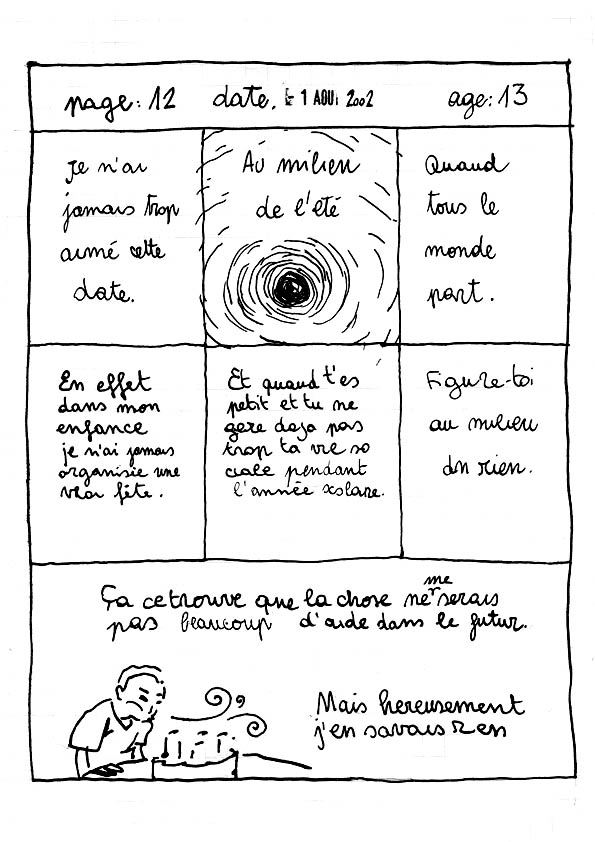 page: 12 date. le 1 AOUT 2002 age: 13
Je n'ai
jamais trop
aimé cette
date.
Au milieu
de l'été
Quand
tous le
monde
part.
En effet
dans mon
enfance
je n'ai jamais
organisie une
vrai fête.
Et quand t'es
petit et tu ne
gere deja pas
trop ta vie so
ciale pendant
l'année scolaire.
Figure-toi
au milieu
du rien.
Ça ce trouve que la chose ne me serais
pas beaucoup d'aide dans le futur.
Mais hereusement
j'en savais rien